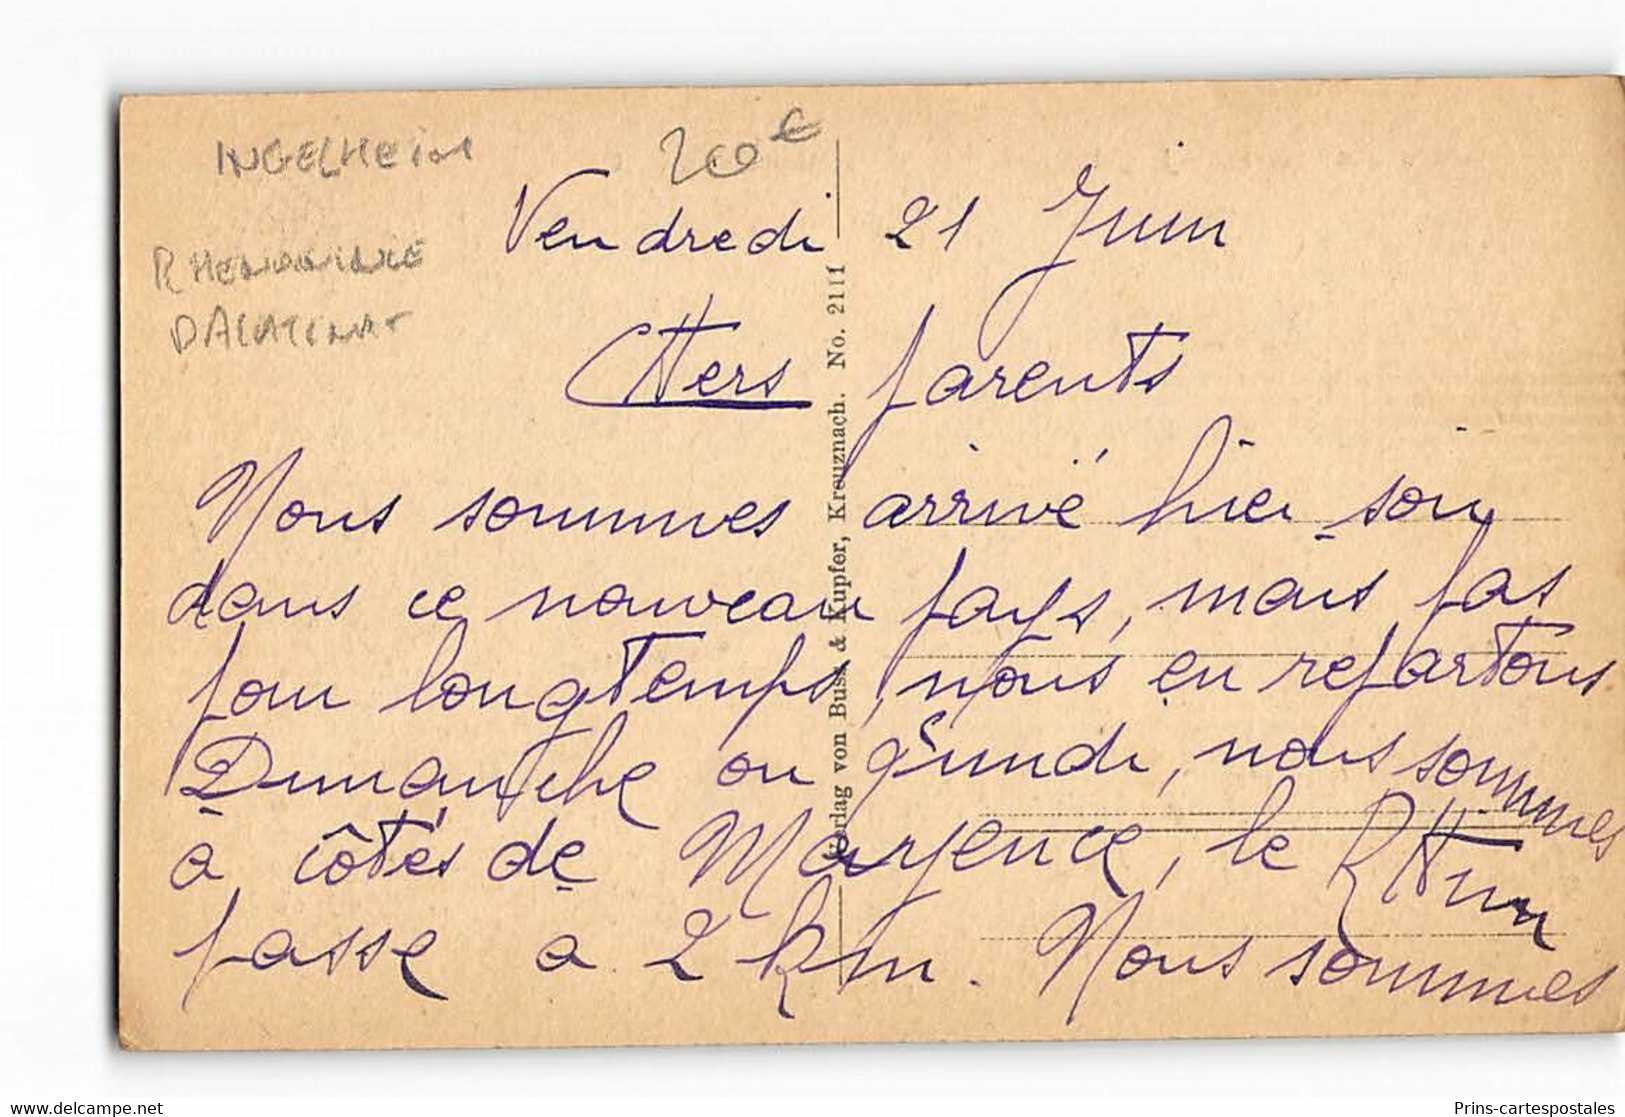 INGELHEIM
20€
RHENANIE
PALATINAT
Vendredi 21 Juin
CHers parents
Nous sommes arrivé hier soir
dans ce nouveau pays, mais pas
pour longtemps, nous en repartons
Dimanche ou Lundi, nous sommes
à côtés de Mayence, le RHin
passe a 2 km. Nous sommes
Verlag von Buss & Kupfer, Kreuznach. No. 2111
www.delcampe.net
Prins-cartespostales